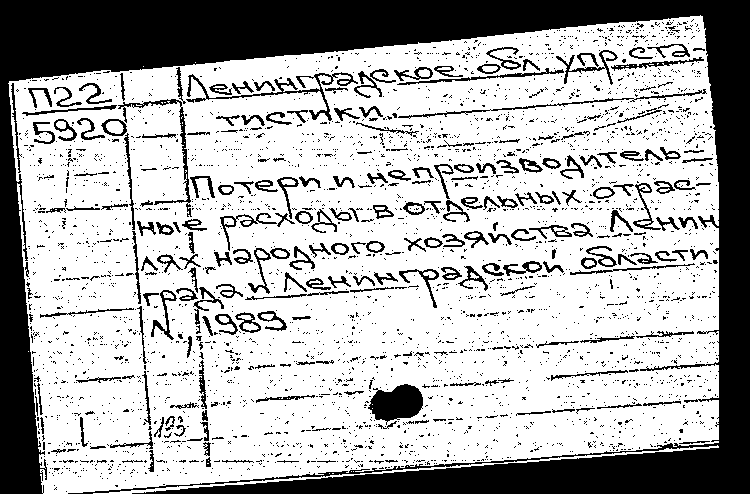 П22
5920
Ленинградское обл. упр. ста-
тистики.
Потери и непроизводитель-
ные расходы в отдельных отрас-
лях народного хозяйства Ленин
града и Ленинградской области.
Л., 1989-
193